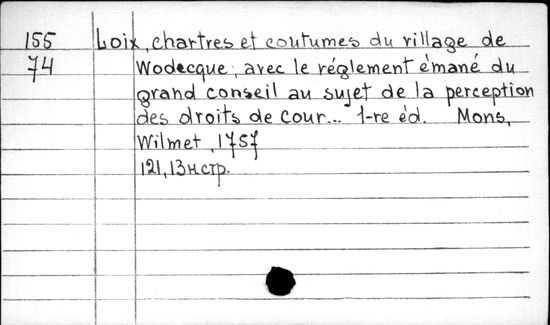 155 Loix, chartres et coutumes du village de
74 Wodecque, avec le réglement émané du
grand conseil au sujet de la perception
des droits de cour... 1-re éd. Mons,
Wilmet, 1757
121, 13нстр.